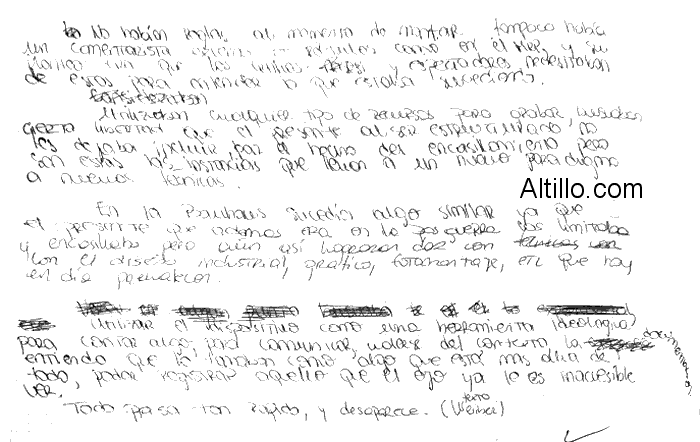 No habían reglas al momento de montar. Tampoco había
un comentarista como en el MRI, y su
que los y espectadores necesitaban
de estos para entender lo que estaba sucediendo.
Utilizaban cualquier tipo de recursos para grabar,
cierta libertad que el presente al ser estructurado no
les dejaba incluir por el hecho del encasillamiento pero
son estas las instancias que llevan a un nuevo paradigma
a nuevas técnicas.
Altillo.com
En la Bauhaus sucedía algo similar ya que
el presente que era en la posguerra los limitaba
y encasillaba pero aún así lograron dar con
con el diseño industrial, gráfico, fotomontaje, etc que hoy
en día prevalecen.
Utilizar el dispositivo como una herramienta ideológica
para contar algo, para comunicar, del contexto, lo documental
entiendo que lo toman como algo que está más allá de
todo, poder registrar aquello que el ojo ya le es inaccesible
ver.
Todo pasa tan rápido, y desaparece. (texto Weibel)